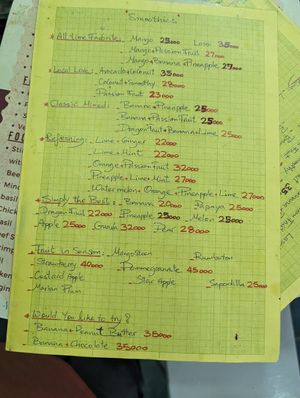 "Smoothies"
* All time Favorites: Mango 25000 Lassi 35000
Mango + Passion Fruit 27000
Mango + Banana + Pineapple 27000
* Local Love: Avocado + Coconut 35000
Coconut + Smoothy 28000
Passion Fruit 23000
* Classic Mixed: Banana + Pineapple 25000
Banana + Passion Fruit 25000
Dragon fruit + Banana + Lime 25000
* Refreshing: Lime + Ginger 22000
Lime + Mint 22000
Orange + Passion Fruit 32000
Pineapple + Lime + Mint 27000
Watermelon + Orange + Pineapple + Lime 27000
* Simply the Best: Banana 20000 Papaya 25000
Dragon Fruit 22000 Pineapple 25000 Melon 25000
Apple 25000 Guava 32000 Pear 28000
* Fruit in Season: Mangosteen Rambutan
Strawberry 40000 Pomegranate 45000
Custard Apple Star Apple Sapodilla 25000
Marian Plum
* Would You like to try?
Banana + Peanut Butter 35000
Banana + Chocolate 35000